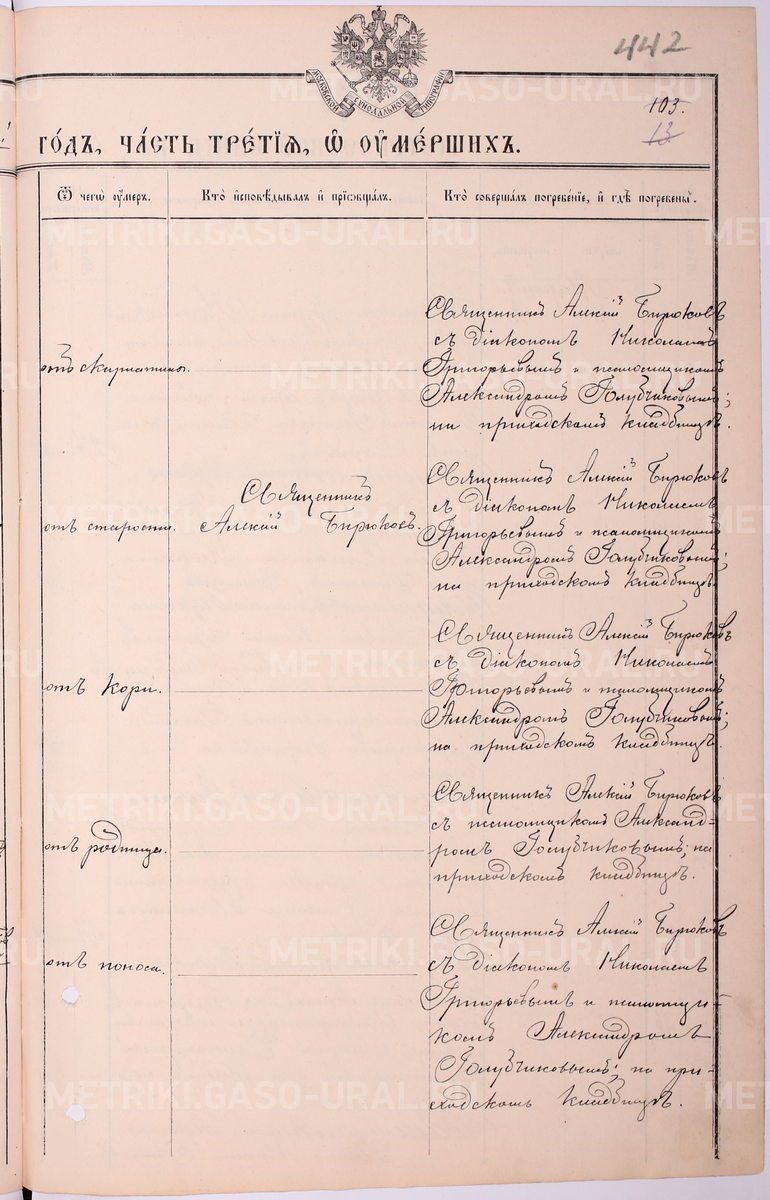 442
МОСКОВСКОЙ СѴНОДАЛЬНОЙ ТИПОГРАФІИ
103.
13
го́дъ, ча́сть тре́тїѧ, ѡ҆ ᲂу҆ме́ршихъ.
Ѿ чегѡ̀ ᲂу҆́меръ.
Кто̀ и҆сповѣ́дывалъ и҆ прїѡбща́лъ.
Кто̀ соверша́лъ погребе́нїе, и҆ гдѣ̀ погребены̀.
отъ скарлатины.
Священникъ Алексій Бирюковъ
съ діакономъ Николаемъ
Григорьевымъ и псаломщикомъ
Александромъ Голубчиковымъ;
на приходскомъ кладбищѣ.
отъ старости.
Священникъ
Алексій Бирюковъ.
Священникъ Алексій Бирюковъ
съ діакономъ Николаемъ
Григорьевымъ и псаломщикомъ
Александромъ Голубчиковымъ;
на приходскомъ кладбищѣ.
отъ кори.
Священникъ Алексій Бирюковъ
съ діакономъ Николаемъ
Григорьевымъ и псаломщикомъ
Александромъ Голубчиковымъ;
на приходскомъ кладбищѣ.
отъ родимца.
Священникъ Алексій Бирюковъ
съ псаломщикомъ Александ-
ромъ Голубчиковымъ; на
приходскомъ кладбищѣ.
отъ поноса.
Священникъ Алексій Бирюковъ
съ діакономъ Николаемъ
Григорьевымъ и псаломщи-
комъ Александромъ
Голубчиковымъ; на при-
ходскомъ кладбищѣ.
METRIKI.GASO-URAL.RU